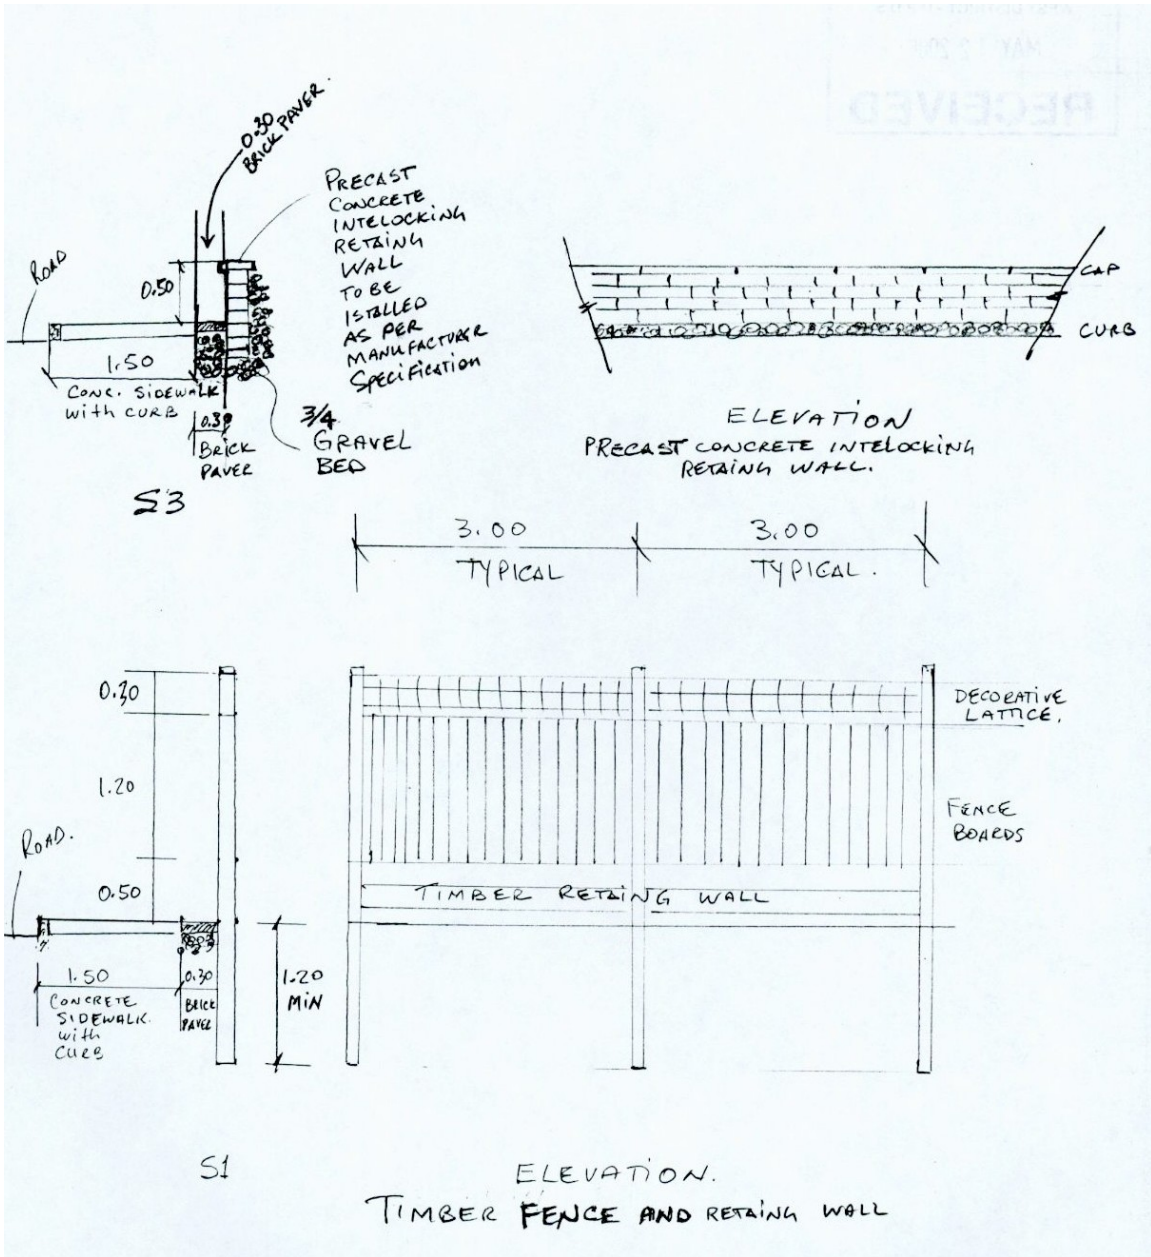 MAY 12 200
RECEIVED
0.30
BRICK PAVER.
PRECAST
CONCRETE
INTELOCKING
RETAING
WALL
TO BE
ISTALLED
AS PER
MANUFACTURER
SPECIFICATION
ROAD
0.50
1.50
CONC. SIDEWALK
with CURB
0.30
BRICK
PAVER
3/4
GRAVEL
BED
S3
CAP
CURB
ELEVATION
PRECAST CONCRETE INTELOCKING
RETAING WALL.
3.00
TYPICAL
3.00
TYPICAL.
0.30
1.20
0.50
ROAD.
1.50
CONCRETE
SIDEWALK.
with
CURB
0.30
BRICK
PAVER
1.20
MIN
DECORATIVE
LATTICE.
FENCE
BOARDS
TIMBER RETAING WALL
S1
ELEVATION.
TIMBER FENCE AND RETAING WALL